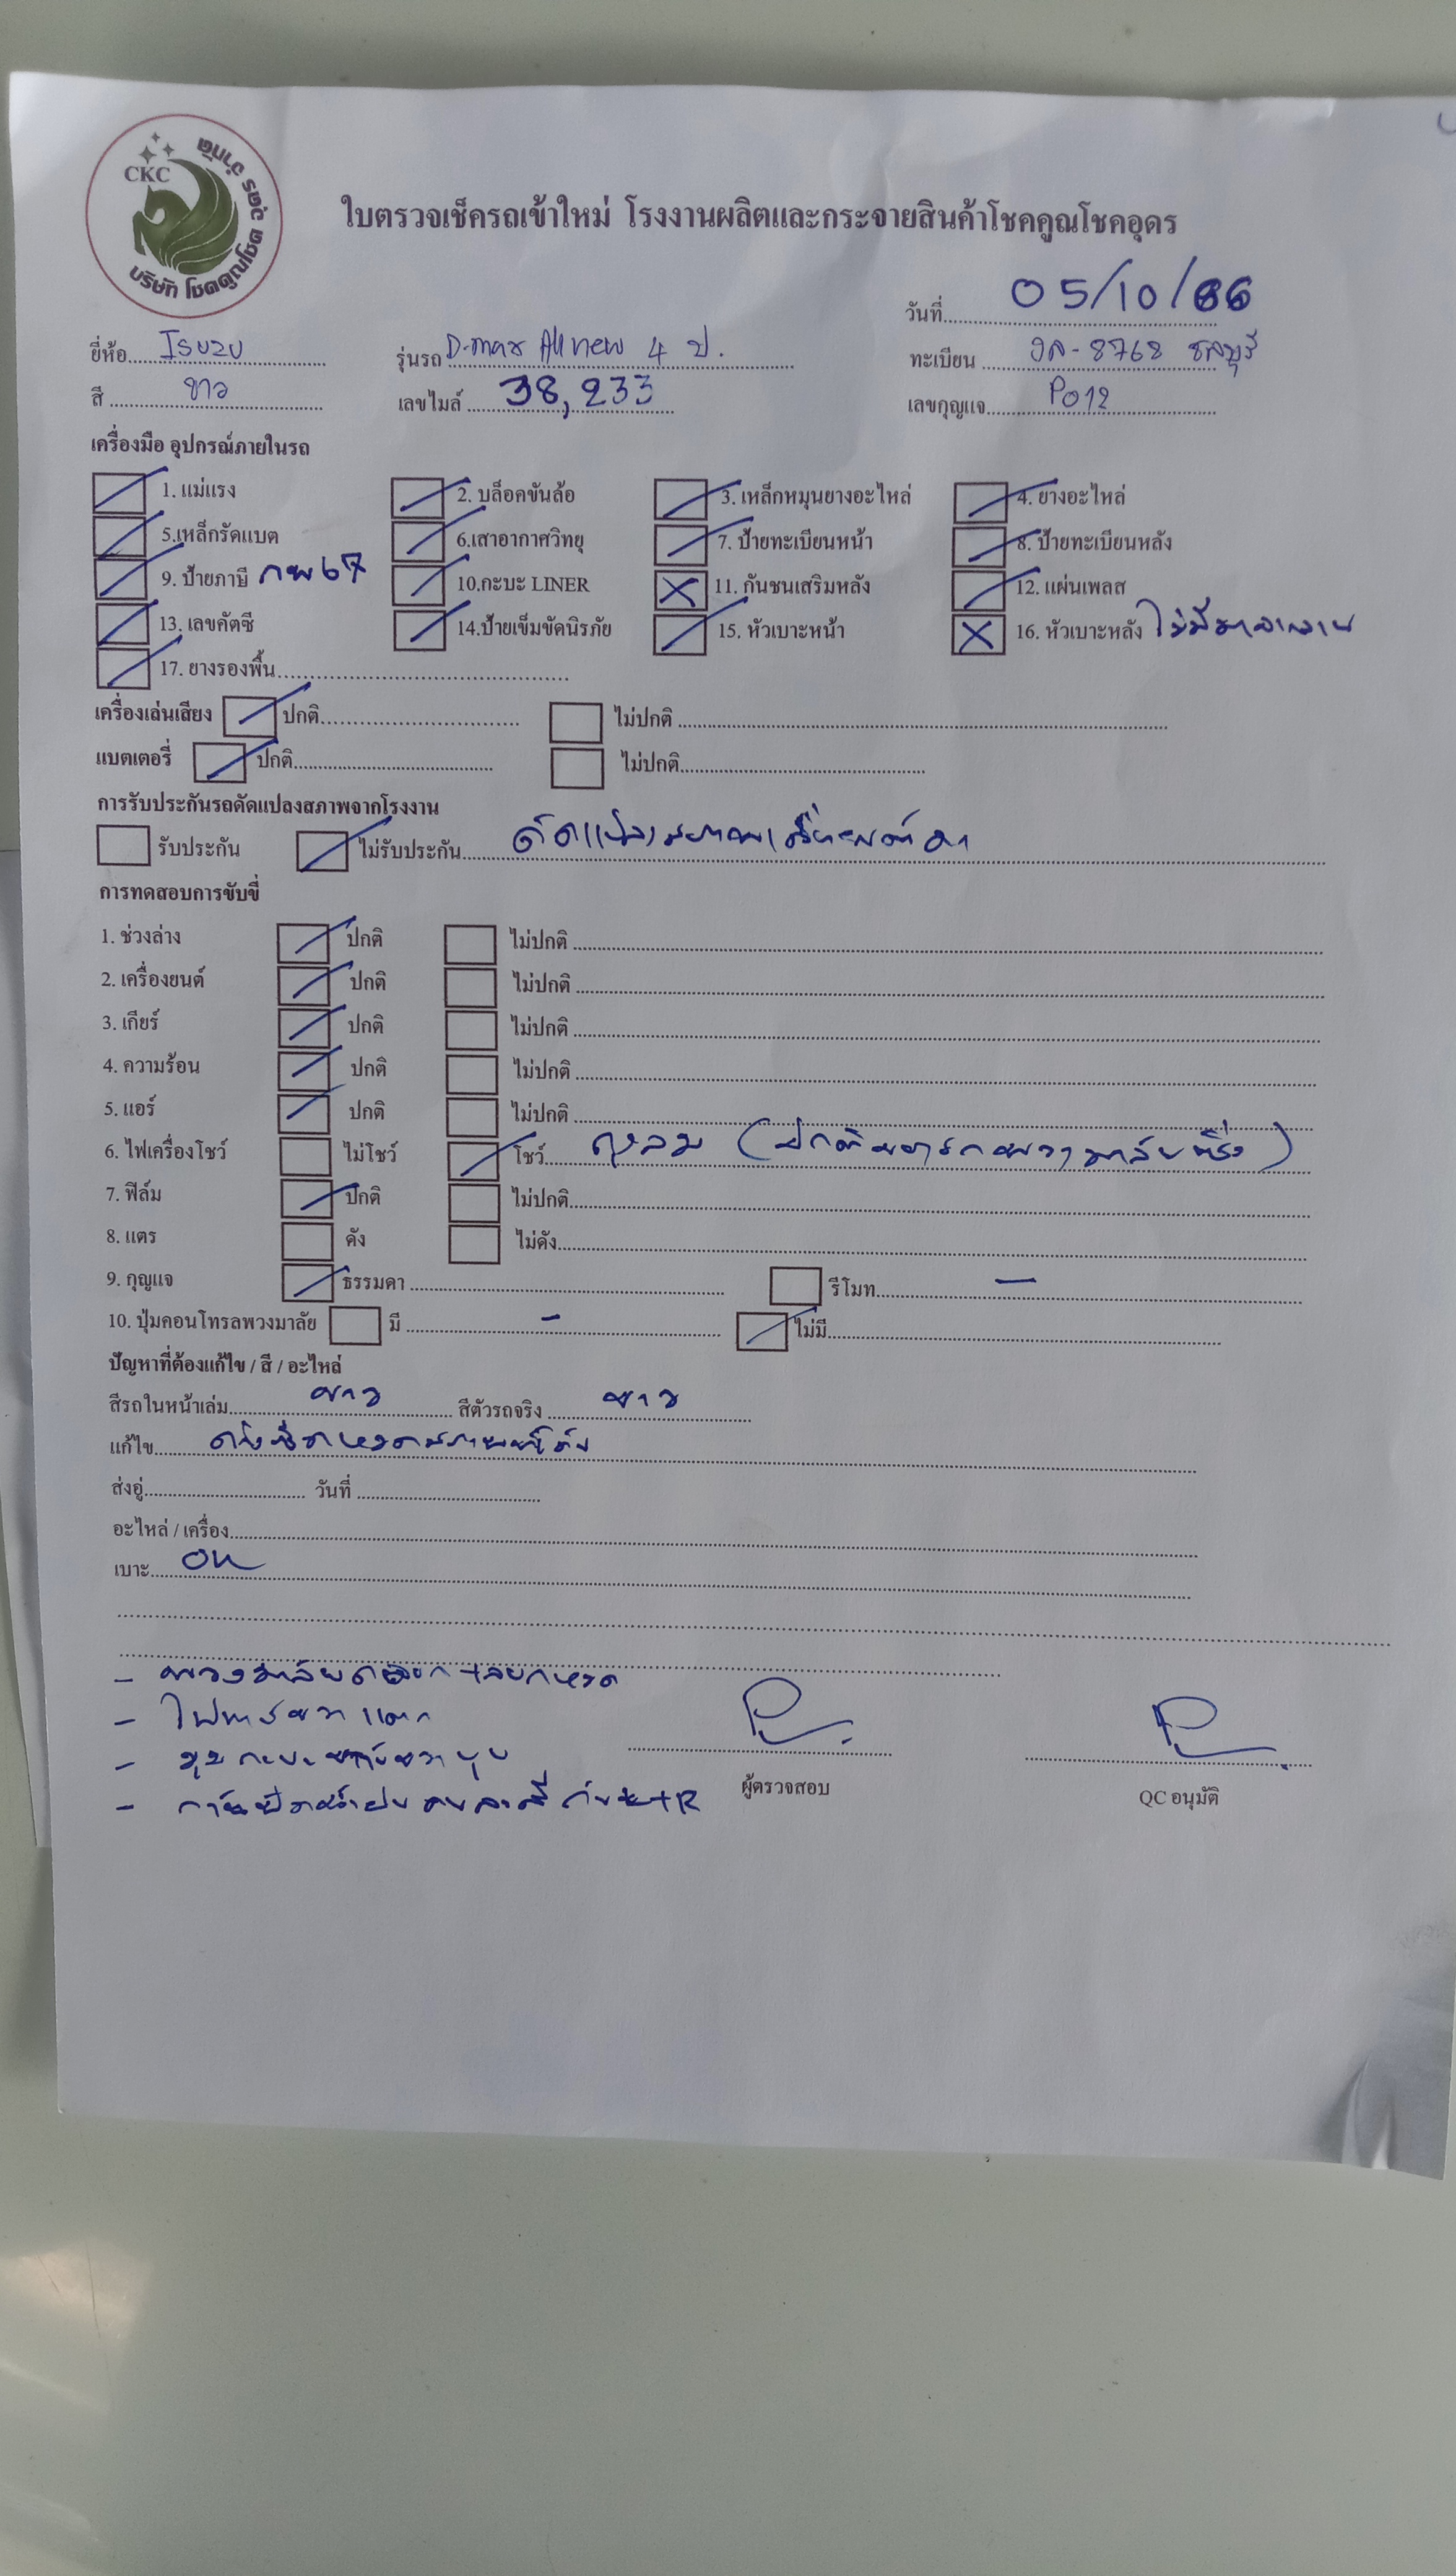 CKC
บริษัท โชคคูณโชค อุดร จำกัด
ใบตรวจเช็ครถเข้าใหม่ โรงงานผลิตและกระจายสินค้าโชคคูณโชคอุดร
วันที่ 05/10/66
ยี่ห้อ Isuzu รุ่นรถ D-max All new 4 ป. ทะเบียน 8768 ชลบุรี
สี ขาว เลขไมล์ 38,233 เลขกุญแจ P012
เครื่องมือ อุปกรณ์ภายในรถ
1. แม่แรง 2. บล็อคขันล้อ 3. เหล็กหมุนยางอะไหล่ 4. ยางอะไหล่
5.เหล็กรัดแบต 6.เสาอากาศวิทยุ 7. ป้ายทะเบียนหน้า 8. ป้ายทะเบียนหลัง
9. ป้ายภาษี กพ 67 10.กะบะ LINER 11. กันชนเสริมหลัง 12. แผ่นเพลส
13. เลขคัตซี 14.ป้ายเข็มขัดนิรภัย 15. หัวเบาะหน้า 16. หัวเบาะหลัง ไม่มี
17. ยางรองพื้น
เครื่องเล่นเสียง ปกติ ไม่ปกติ
แบตเตอรี่ ปกติ ไม่ปกติ
การรับประกันรถดัดแปลงสภาพจากโรงงาน
รับประกัน ไม่รับประกัน ดัดแปลงสภาพ
การทดสอบการขับขี่
1. ช่วงล่าง ปกติ ไม่ปกติ
2. เครื่องยนต์ ปกติ ไม่ปกติ
3. เกียร์ ปกติ ไม่ปกติ
4. ความร้อน ปกติ ไม่ปกติ
5. แอร์ ปกติ ไม่ปกติ
6. ไฟเครื่องโชว์ ไม่โชว์ โชว์ ถุงลม
7. ฟิล์ม ปกติ ไม่ปกติ
8. แตร ดัง ไม่ดัง
9. กุญแจ ธรรมดา รีโมท -
10. ปุ่มคอนโทรลพวงมาลัย มี - ไม่มี
ปัญหาที่ต้องแก้ไข / สี / อะไหล่
สีรถในหน้าเล่ม ขาว สีตัวรถจริง ขาว
แก้ไข
ส่งอู่ วันที่
อะไหล่ / เครื่อง
เบาะ OK
- พวงมาลัย
- ไฟ ขวา แตก
- มุมกะบะ ขวา บุบ
ผู้ตรวจสอบ QC อนุมัติ